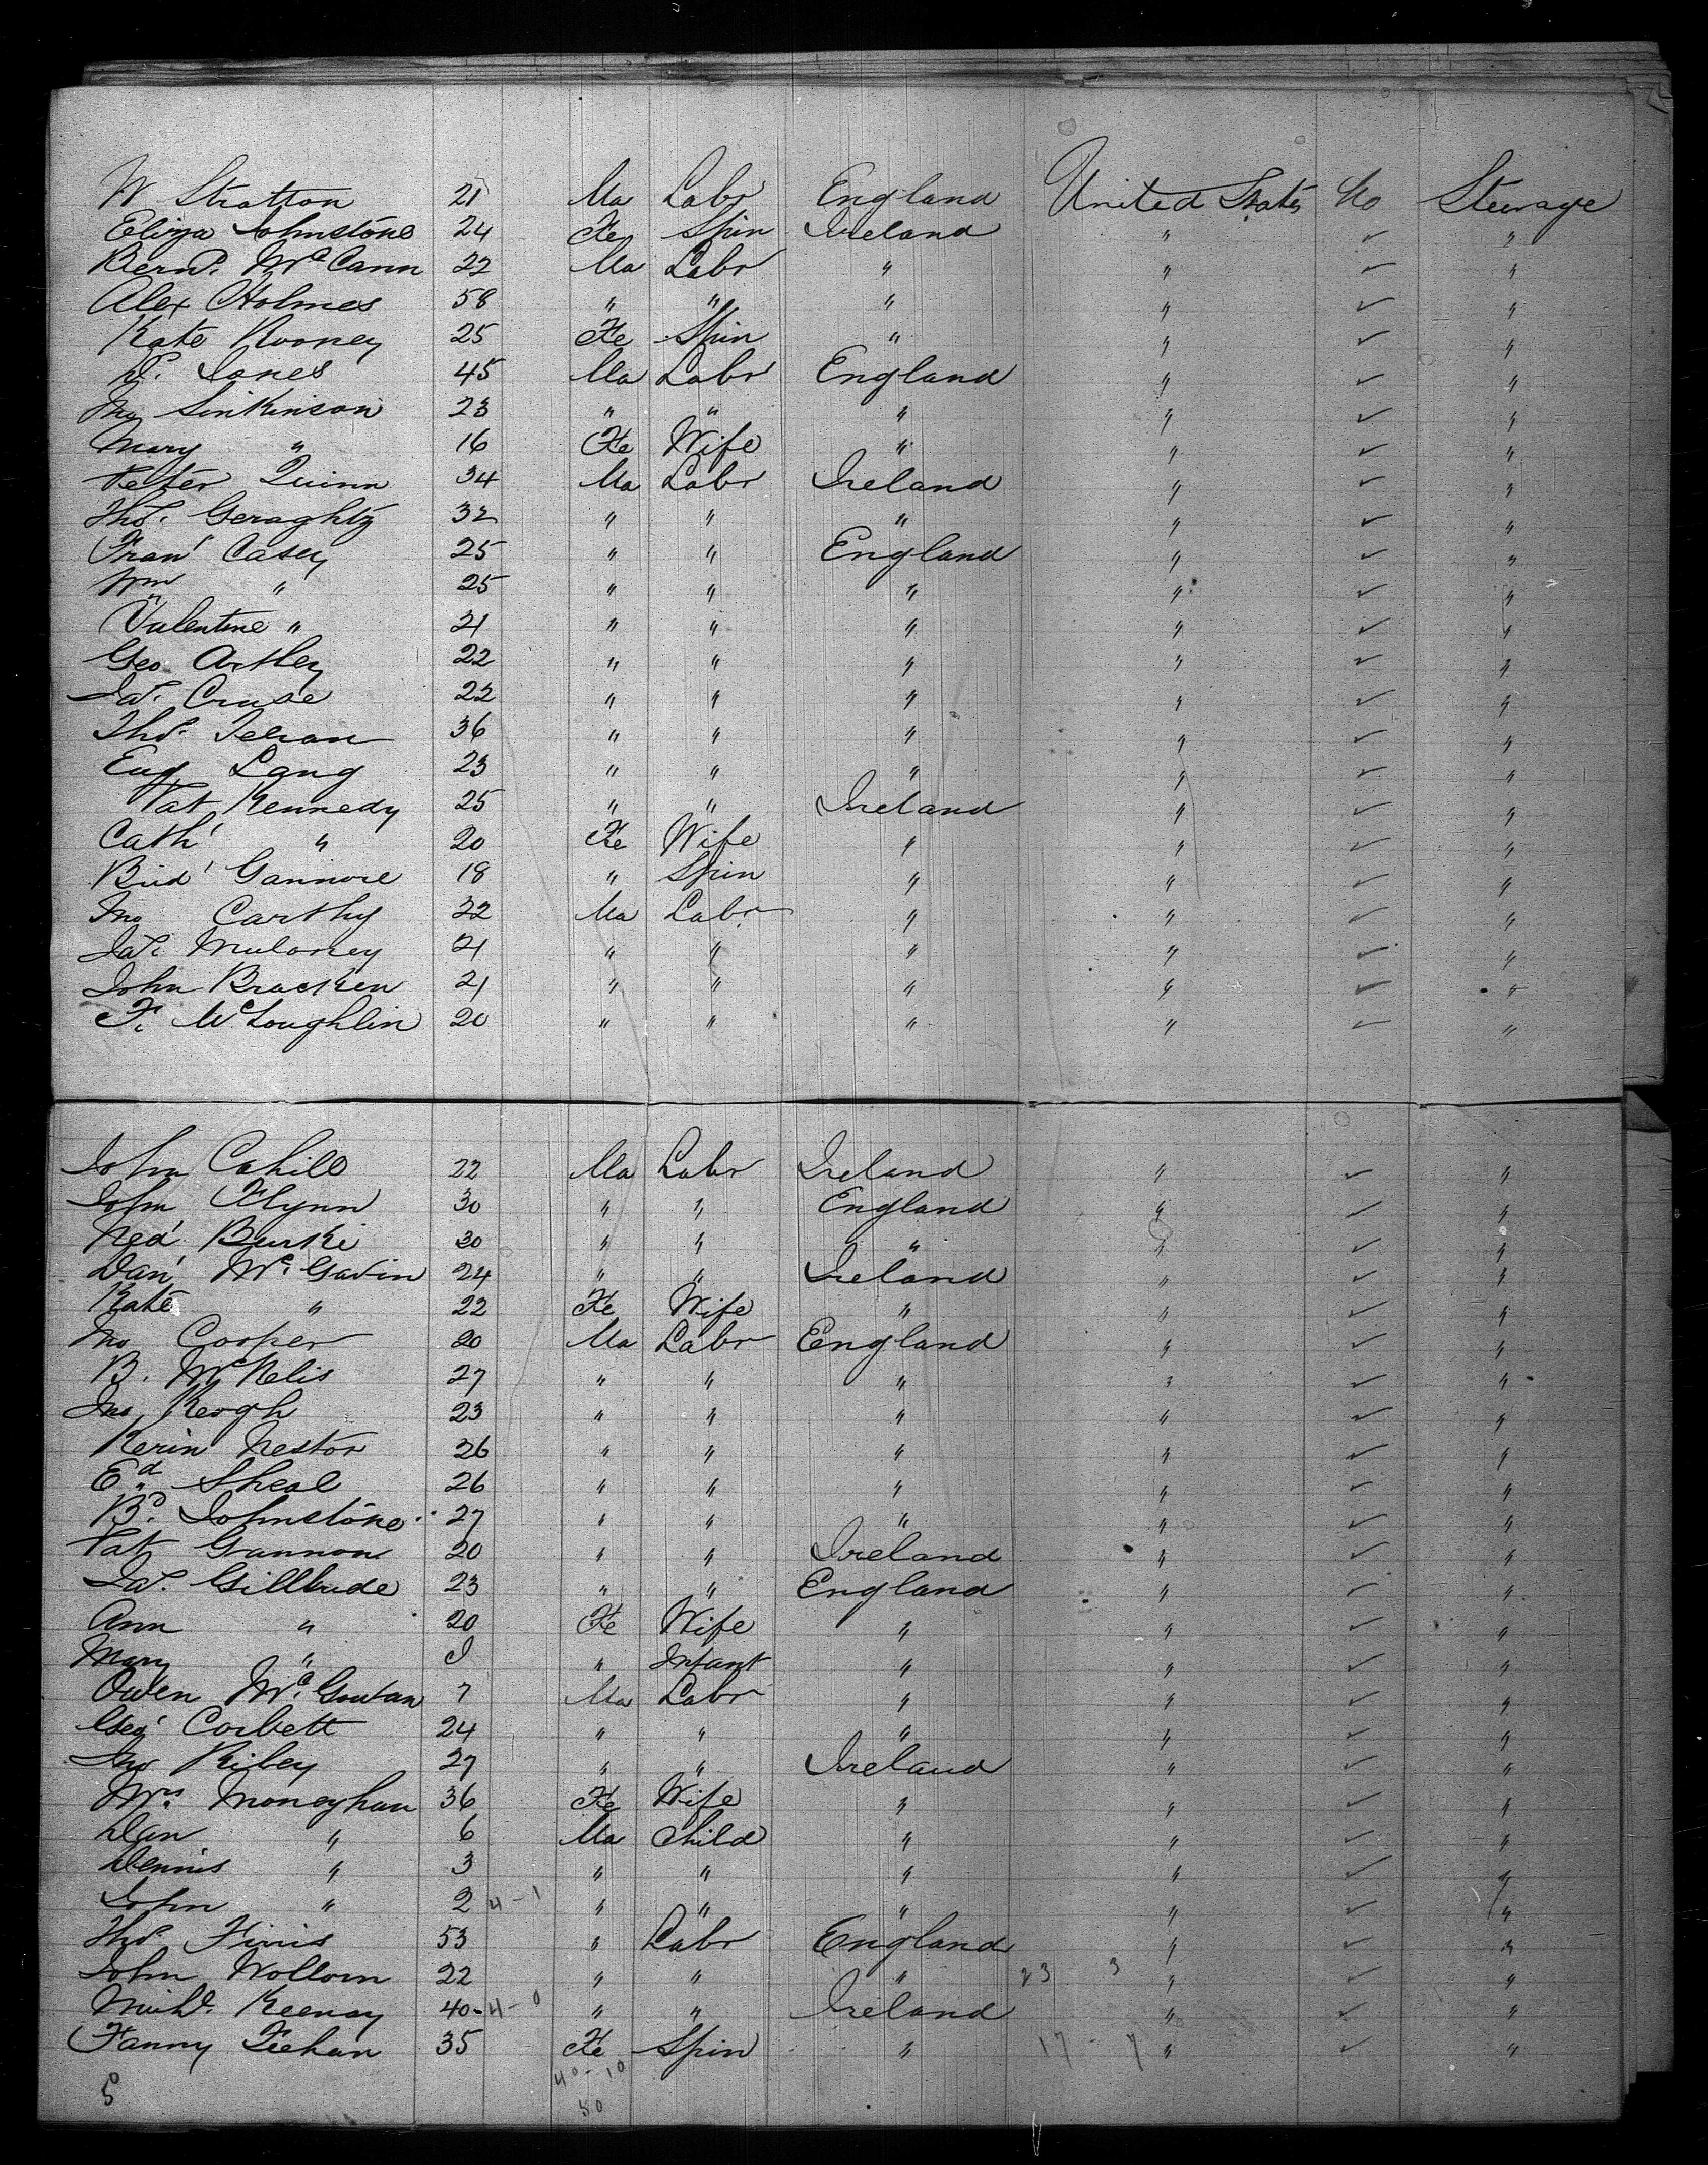 W Stratton 21 Ma Labr England United States No Steerage
Eliza Johnstone 24 Fe Spin Ireland " ✓ "
Bernd. McCann 22 Ma Labr " " ✓ "
Alex Holmes 58 " " " " ✓ "
Kate Rooney 25 Fe Spin " " ✓ "
Jones 45 Ma Labr England " ✓ "
Jno Sinkinson 23 " " " " ✓ "
Mary " 16 Fe Wife " " ✓ "
Peter Quinn 34 Ma Labr Ireland " ✓ "
Thos. Geraghty 32 " " " " ✓ "
Fran' Casey 25 " " England " ✓ "
Wm " 25 " " " " ✓ "
Valentine " 21 " " " " ✓ "
Geo Arthey 22 " " " " ✓ "
Jas. Cruse 22 " " " " ✓ "
Thos. 36 " " " " ✓ "
Eug Lang 23 " " " " ✓ "
Pat Kennedy 25 " " Ireland " ✓ "
Cath' " 20 Fe Wife " " ✓ "
Brid' 18 " Spin " " ✓ "
Jno Carthy 22 Ma Labr " " ✓ "
Jas. Muloney 21 " " " " ✓ "
John Bracken 21 " " " " ✓ "
F. McLoughlin 20 " " " " ✓ "
John Cahill 22 Ma Labr Ireland " ✓ "
John Flynn 30 " " England " ✓ "
Ned' Burke 30 " " " " ✓ "
Dan' Mc. Gavin 24 " " Ireland " ✓ "
Kate " 22 Fe Wife " " ✓ "
Jno Cooper 20 Ma Labr England " ✓ "
B. McNelis 27 " " " " ✓ "
Jno Keogh 23 " " " " ✓ "
Kerin Nestor 26 " " " " ✓ "
Ed Sheal 26 " " " " ✓ "
Bd. Johnstone 27 " " " " ✓ "
Pat Gannon 20 " " Ireland " ✓ "
Jas. Gillbude 23 " " England " ✓ "
Ann " 20 Fe Wife " " ✓ "
Mary " I " Infant " " ✓ "
Owen Mc. Gowan 7 Ma Labr " " ✓ "
Geo' Corbett 24 " " " " ✓ "
Jno Riley 27 " " Ireland " ✓ "
Mrs. Moneyhan 36 Fe Wife " " ✓ "
Dan " 6 Ma Child " " ✓ "
Dennis " 3 " " " " ✓ "
John " 2 4-1 " " " " ✓ "
Thos. Finis 53 " Labr England " ✓ "
John Wollom 22 " " " 23 3 " ✓ "
Michl. Keenay 40 - 4-0 " " Ireland " ✓ "
Fanny Feehan 35 Fe Spin " 17 - 7 " ✓ "
5 40-10
50